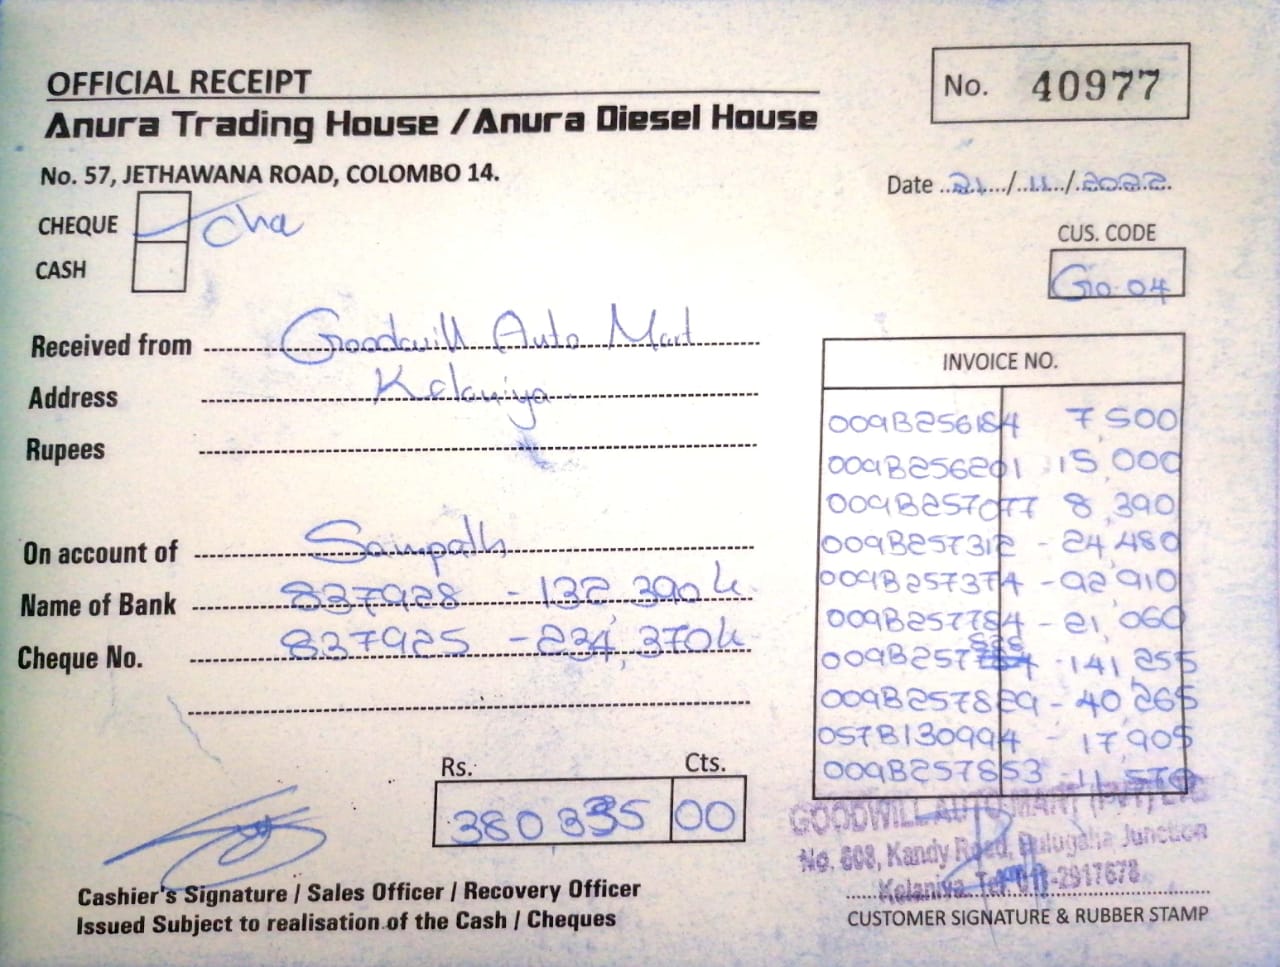 OFFICIAL RECEIPT
No. 40977
Anura Trading House / Anura Diesel House
No. 57, JETHAWANA ROAD, COLOMBO 14.
Date 21/11/2022
CHEQUE
CASH
CUS. CODE
Go 04
Received from Goodwill Auto Mart
Address Kelaniya
Rupees
On account of Sampath
Name of Bank 837928 - 132,390
Cheque No. 837925 - 234,370
INVOICE NO.
009B256184 7,500
009B256201 15,000
009B257077 8,390
009B257312 - 24,480
009B257374 - 92,910
009B257784 - 21,060
009B257828 - 141 255
009B257829 - 40 265
057B130994 - 17,905
009B257853 - 11,570
Rs. Cts.
380 335 00
GOODWILL AUTO MART (PVT) LTD
No. 608, Kandy Road, Dalugaha Junction
Kelaniya. Tel: 011-2917678
Cashier's Signature / Sales Officer / Recovery Officer
Issued Subject to realisation of the Cash / Cheques
CUSTOMER SIGNATURE & RUBBER STAMP